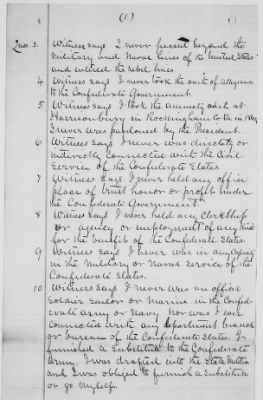 (8)
Ques. 3. Witness says I never passed beyond the
military and naval lines of the United States
and entered the rebel lines.
4 Witness says I never took the oath of allegiance
to the Confederate Government.
5 Witness says I took the amnesty oath at
Harrisonburg in Rockingham Co Va in 1865
I never was pardoned by the President.
6 Witness says I never was directly or
indirectly connected with the Civil
Service of the Confederate States.
7 Witness says I never held any office
place of trust honor or profit under
the Confederate Government.
8 Witness says I never held any Clerkship
or agency or employment of any kind
for the benefit of the Confederate States.
9 Witness says I never was in any capacity
in the Military or Naval Service of the
Confederate States.
10 Witness says I never was an officer
Soldier Sailor or Marine in the Confed-
erate Army or Navy nor was I ever
connected with any department branch
or bureau of the Confederate States. I
furnished a Substitute to the Confederate
Army. I was drafted into the State Militia
and I was obliged to furnish a Substitute
or go myself.